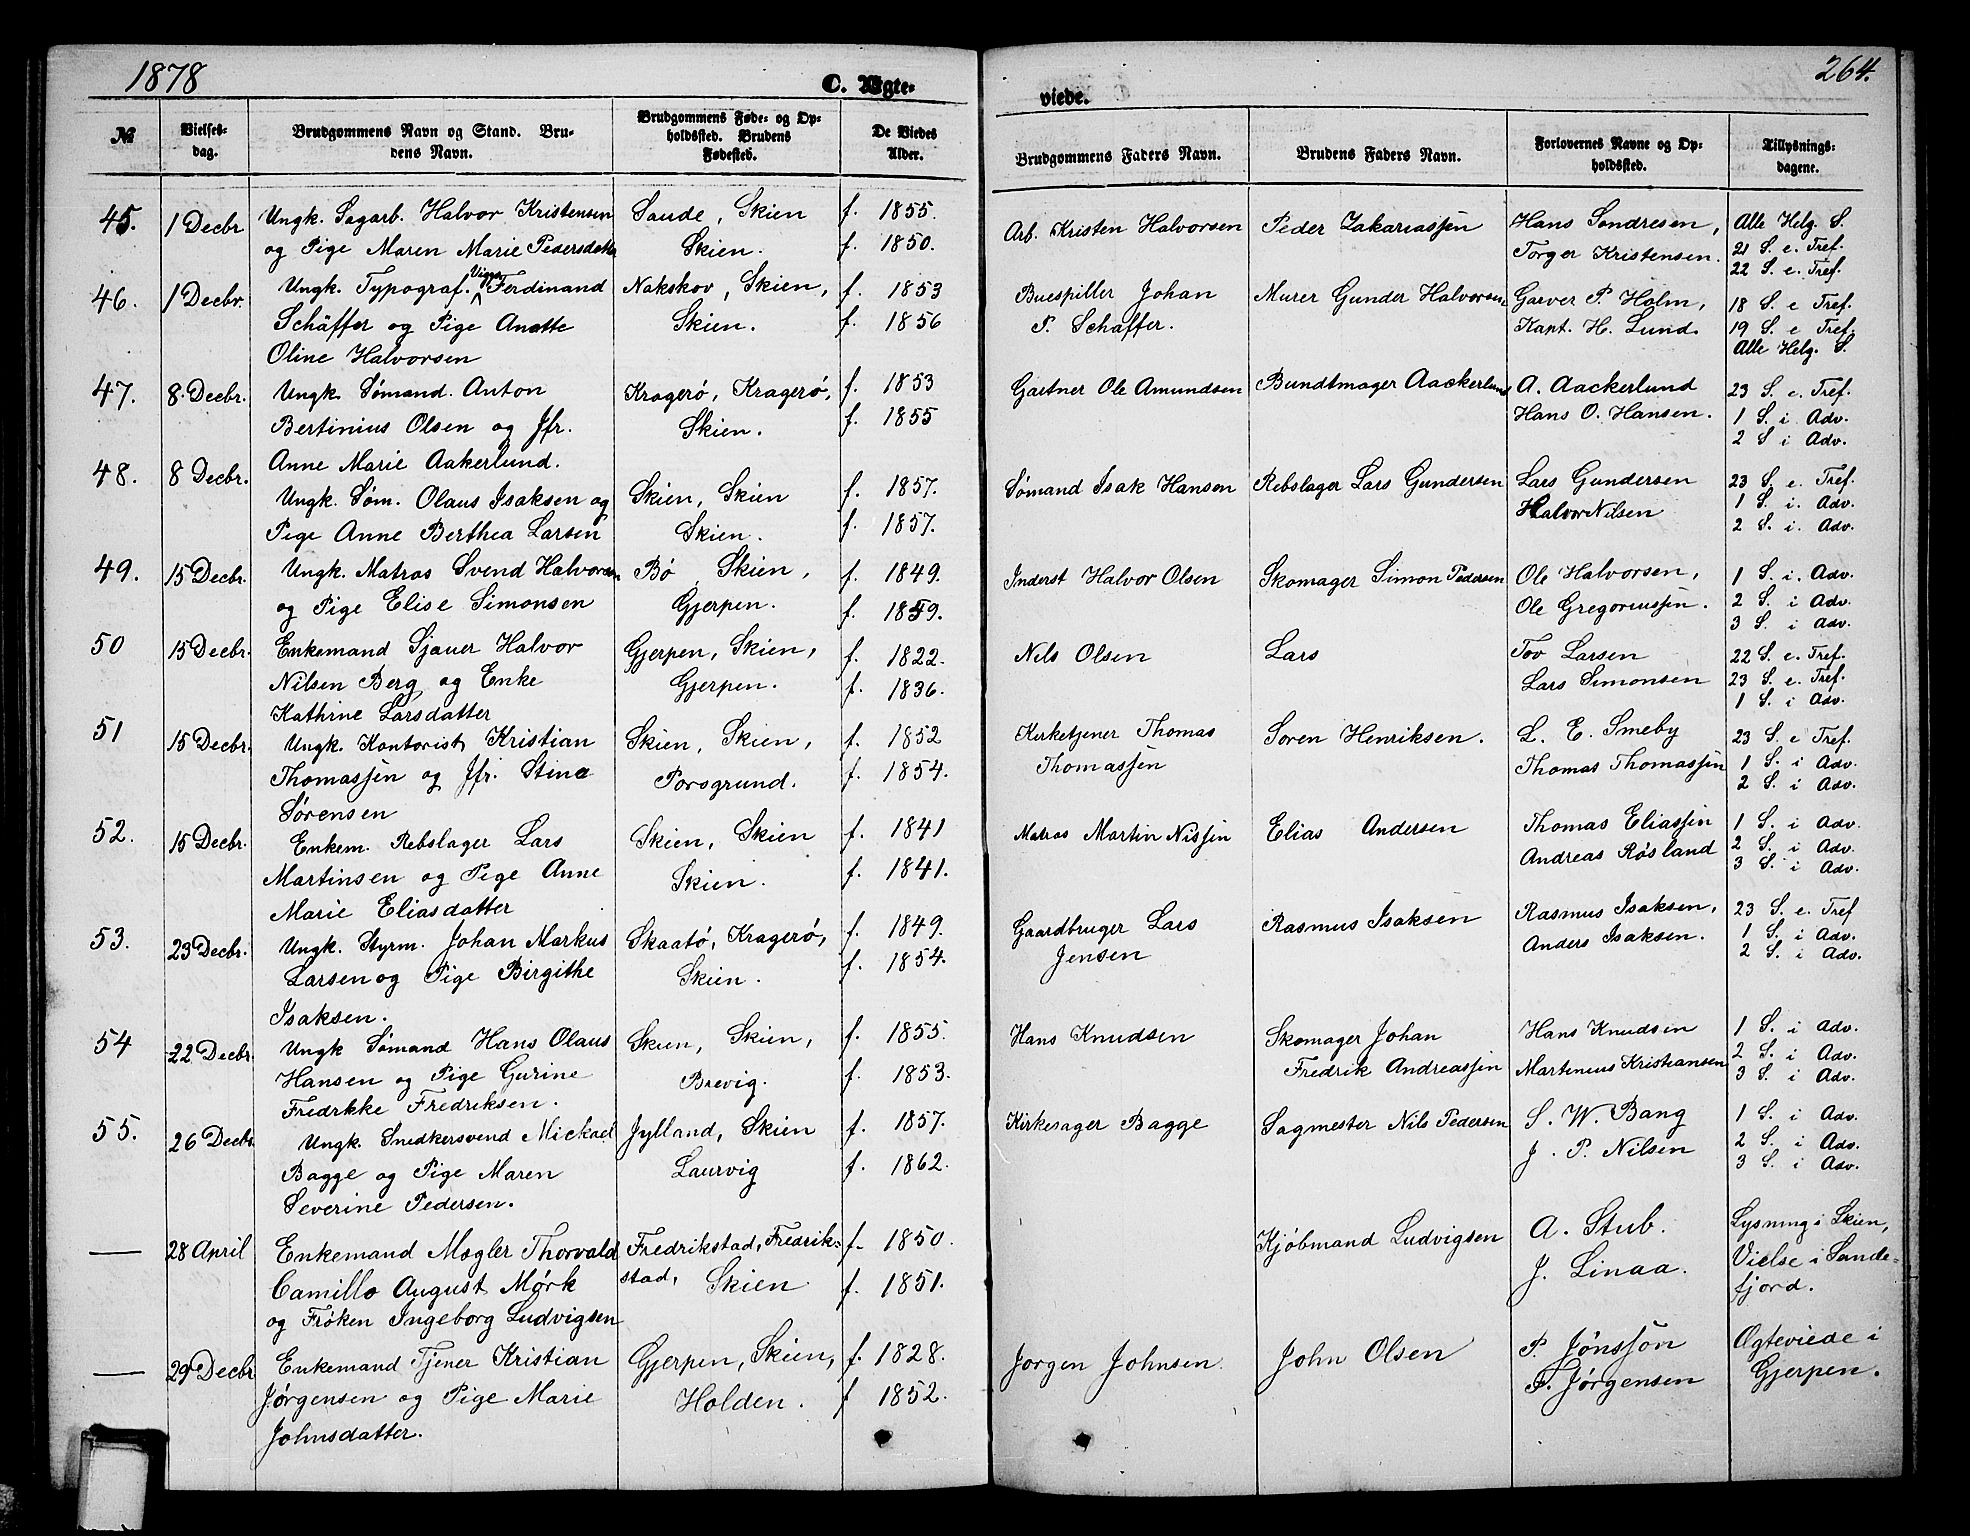 1878
C. Ægte-
viede.
264.
№
Vielses-
dag.
Brudgommens Navn og Stand. Bru-
dens Navn.
Brudgommens Føde- og Op-
holdssted. Brudens
Fødested.
De Viedes
Alder.
Brudgommens Faders Navn.
Brudens Faders Navn.
Forlovernes Navne og Op-
holdssted.
Tillysnings-
dagene.
45.
1 Decbr
Ungk. Sagarb. Halvor Kristensen
og Pige Maren Marie Pedersdatter
Saude, Skien
Skien.
f. 1855.
f. 1850.
Arb. Kristen Halvorsen
Peder Zakariassen
Hans Sondresen,
Torger Kristensen.
Alle Helg. S.
21 S. e. Tref.
22 S. e. Tref.
46.
1 Decbr.
Ungk. Typograf. Viggo Ferdinand
Schäffer og Pige Anette
Oline Halvorsen
Nakskov, Skien,
Skien.
f. 1853
f. 1856
Buespiller Johan
P. Schäffer.
Murer Gunder Halvorsen
Garver P. Holm,
Kapt. H. Lund.
18 S. e Tref.
19 S. e Tref.
Alle Helg. S.
47.
8. Decbr.
Ungk. Sømand. Anton
Bertinius Olsen og Jfr.
Anne Marie Aakerlund.
Kragerø, Kragerø,
Skien.
f. 1853
f. 1855
Gartner Ole Amundsen
Bundtmager Aackerlund
A. Aackerlund
Hans O. Hansen.
23 S. e. Tref.
1 S. i. Adv.
2 S i Adv.
48.
8 Decbr.
Ungk. Søm. Olaus Isaksen og
Pige Anne Berthea Larsen
Skien, Skien
Skien.
f. 1857.
f. 1857.
Sømand Isak Hansen
Rebslager Lars Gundersen
Lars Gundersen
Halvor Nilsen
23 S. e. Tref.
1 S. i. Adv.
2 S. i. Adv.
49.
15 Decbr.
Ungk. Matros Svend Halvorsen
og Pige Elise Simonsen
Bø, Skien,
Gjerpen.
f. 1849.
f. 1859.
Inderst Halvor Olsen
Skomager Simon Pedersen
Ole Halvorsen,
Ole Gregoriussen.
1 S. i. Adv.
2 S. i Adv.
3 S. i Adv.
50
15 Decbr.
Enkemand Sjauer Halvor
Nilsen Berg og Enke
Kathrine Larsdatter
Gjerpen, Skien,
Gjerpen.
f. 1822.
f. 1836.
Nils Olsen
Lars
Tov Larsen
Lars Simonsen
22 S. e. Tref.
23 S. e. Tref.
1 S. i. Adv.
51
15 Decbr.
Ungk. Kontorist Kristian
Thomassen og Jfr. Stina
Sørensen
Skien, Skien,
Porsgrund.
f. 1852
f. 1854.
Kirketjener Thomas
Thomassen
Soren Henriksen.
L. E. Smeby
Thomas Thomassen
23 S. e Tref.
1 S. i Adv.
2 S. i Adv.
52.
15 Decbr.
Enkem. Rebslager Lars
Martinsen og Pige Anne
Marie Eliasdatter
Skien, Skien
Skien.
f. 1841
f. 1841.
Matros Martin Nissen
Elias Andersen
Thomas Eliassen
Andreas Røsland
1 S. i Adv.
2 S. i Adv.
3 S. i Adv.
53.
23 Decbr.
Ungk. Styrm. Johan Markus
Larsen og Pige Birgithe
Isaksen.
Skaatø, Kragerø,
Skien.
f. 1849.
f. 1854.
Gaardbruger Lars
Jensen
Rasmus Isaksen
Rasmus Isaksen,
Anders Isaksen.
23 S. e. Tref
1 S. i Adv.
2 S. i Adv.
54
22 Decbr.
Ungk Sømand Hans Olaus
Hansen og Pige Gurine
Fredrkke Fredriksen.
Skien, Skien,
Brevig.
f. 1855.
f. 1853.
Hans Knudsen
Skomager Johan
Fredrik Andreassen
Hans Knudsen
Martinius Kristiansen
1 S. i Adv.
2 S. i Adv.
3 S. i Adv.
55.
26 Decbr.
Ungk. Snedkersvend Mickael
Bagge og Pige Maren
Severine Pedersen.
Jylland, Skien
Laurvig
f. 1857.
f. 1862.
Kirkesager Bagge
Sagmester Nils Pedersen
S. W. Bang
J. P. Nilsen
1 S. i Adv.
2 S. i Adv.
3 S. i Adv.
—
28 April
Enkemand Mægler Thorvald
Camillo August Mørk
og Frøken Ingeborg Ludvigsen
Fredrikstad, Fredrik-
stad, Skien
f. 1850.
f. 1851.
Kjøbmand Ludvigsen
A. Stub.
J. Linaa.
Lysning i Skien,
Vielse i Sande-
fjord.
—
29 Decbr
Enkemand Tjener Kristian
Jørgensen og Pige Marie
Johnsdatter.
Gjerpen, Skien,
Holden.
f. 1828.
f 1852.
Jorgen Johnsen.
John Olsen
P. Jønssøn
F. Jørgensen
Ægteviede i
Gjerpen.